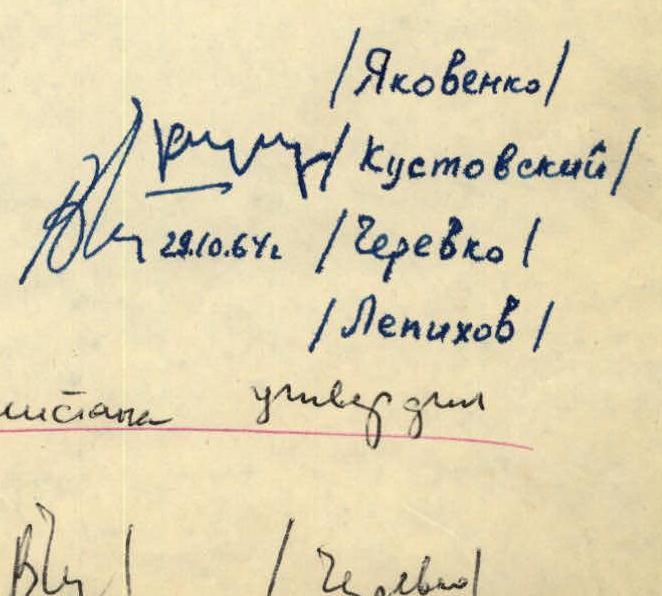 /Яковенко/
/Кустовский/
29.10.64г /Черевко/
/Лепихов/
утвердил
/Черевко/